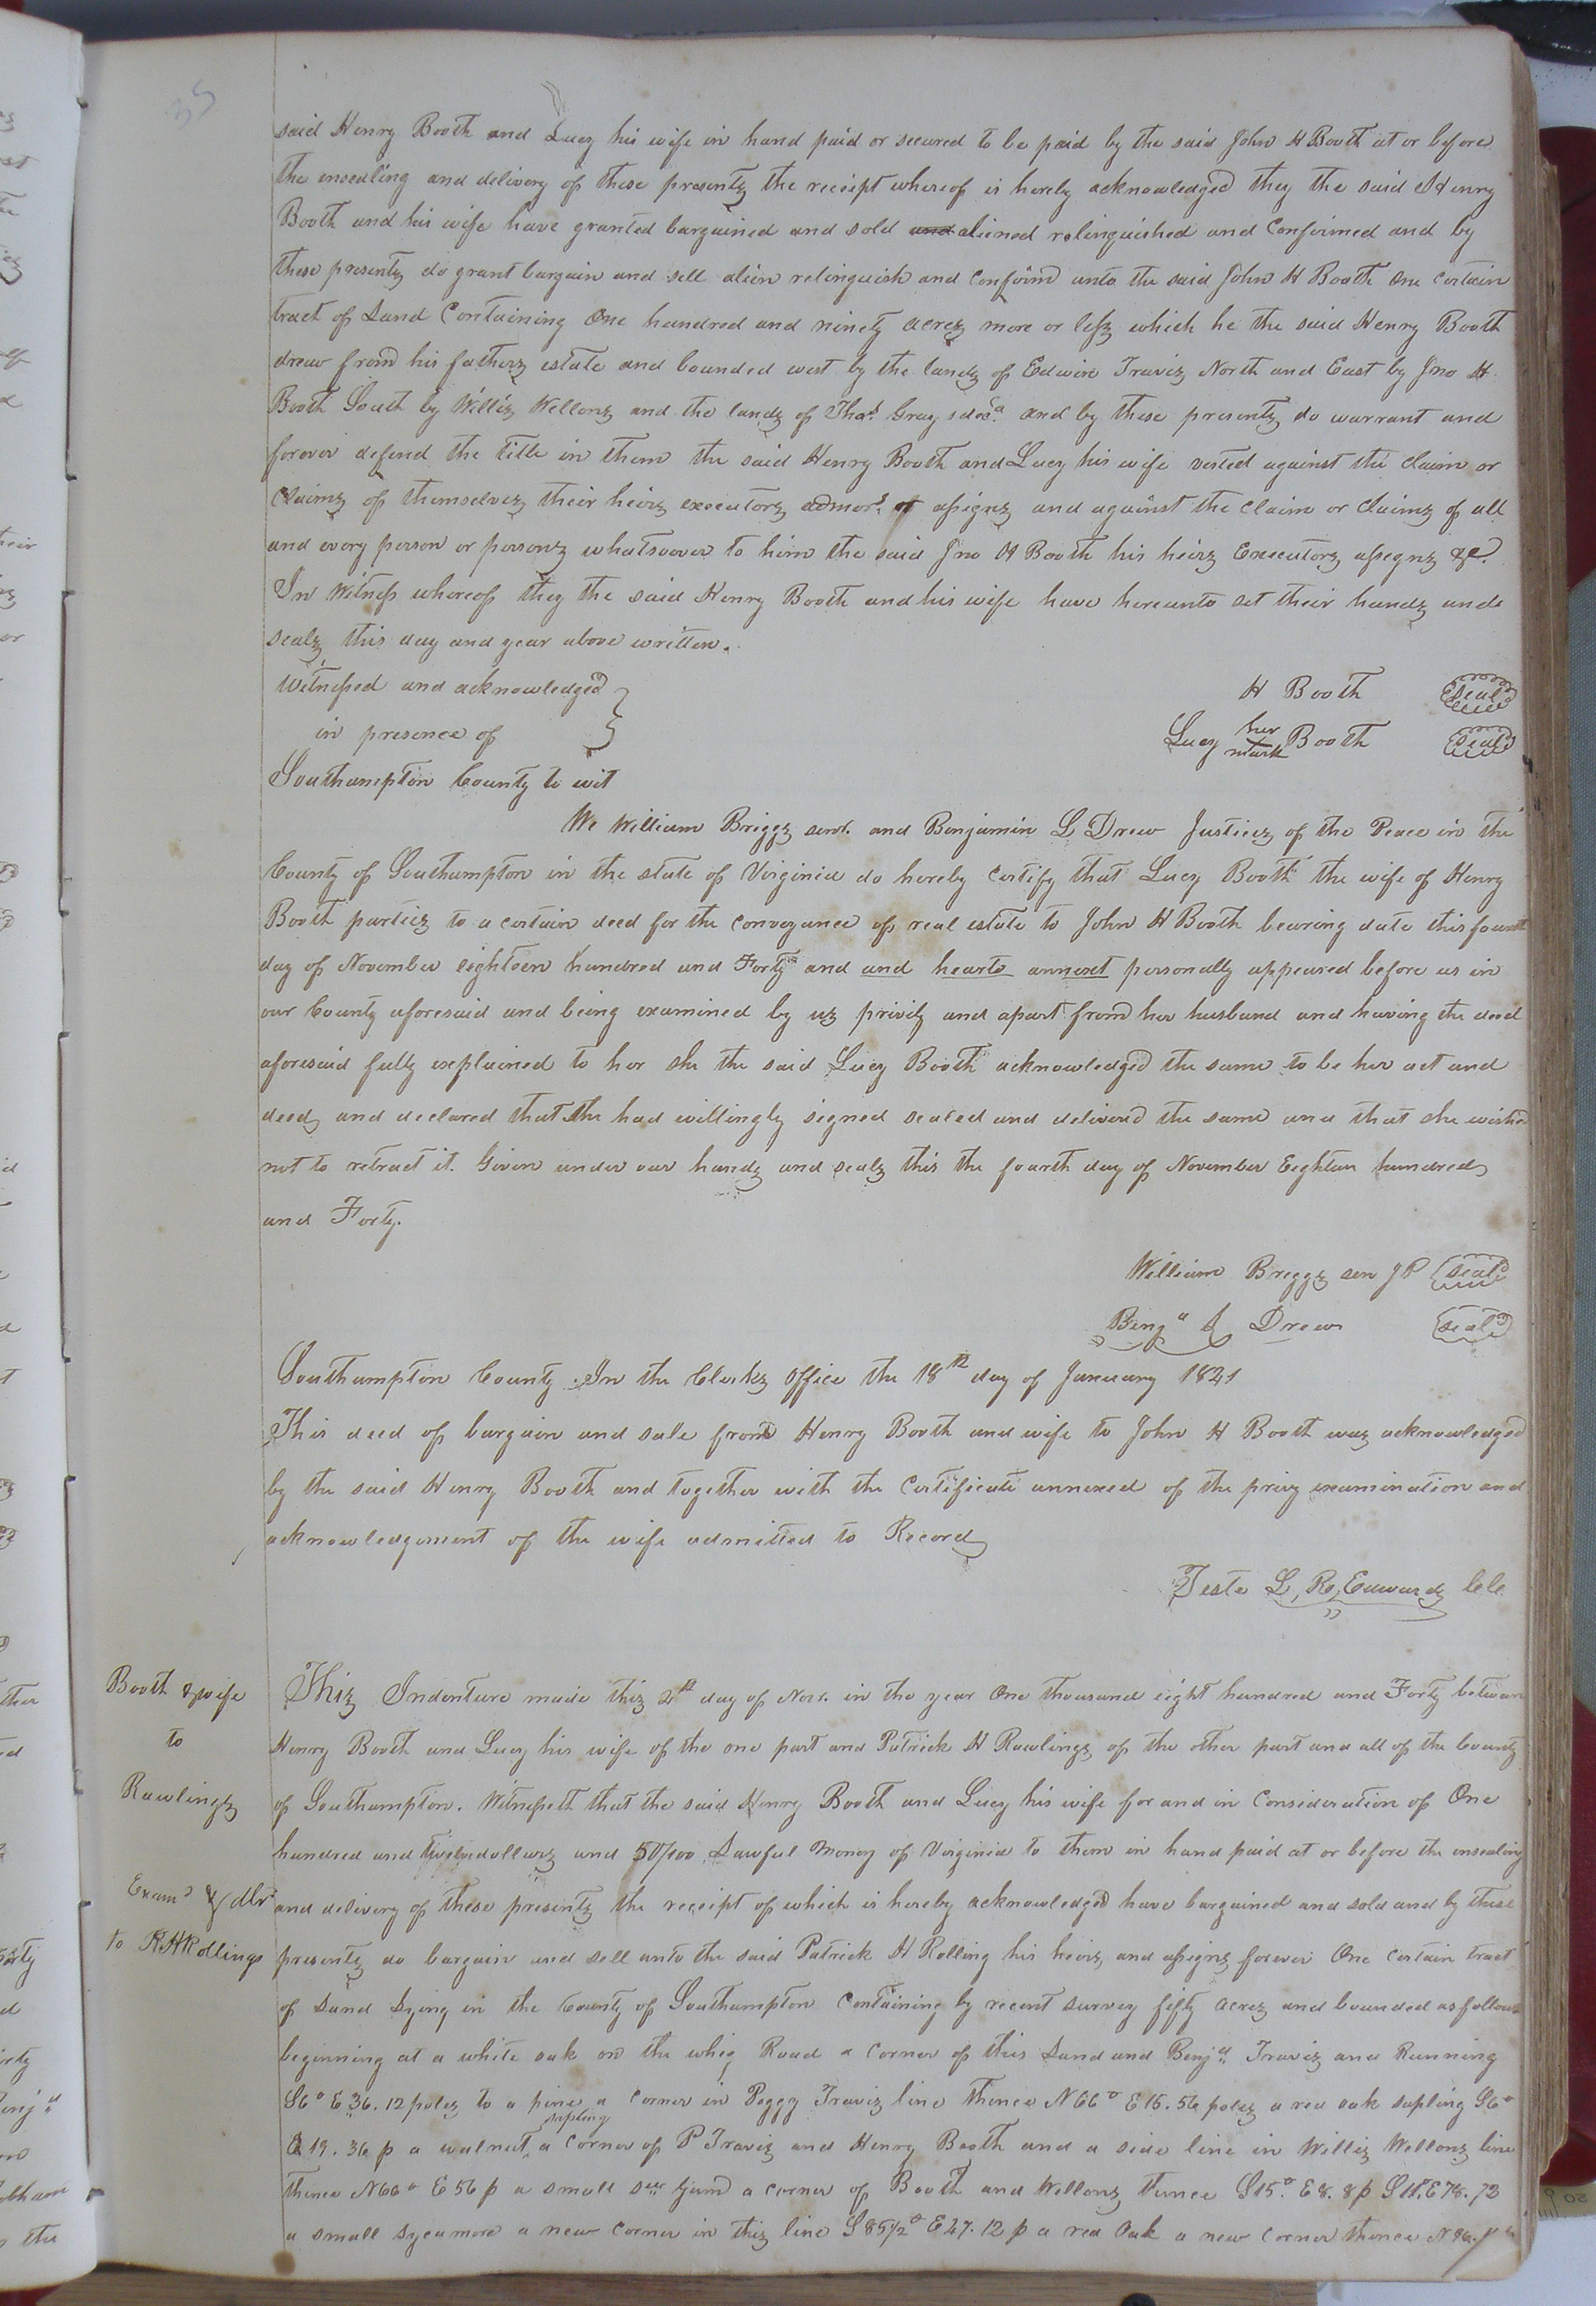 35
said Henry Booth and Lucy his wife in hand paid or secured to be paid by the said John H Booth at or before
the ensealing and delivery of these presents the receipt whereof is hereby acknowledged they the said Henry
Booth and his wife have granted bargained and sold and aliened relinquished and Confirmed and by
these presents do grant bargain and sell alien relinquish and Confirm unto the said John H Booth One certain
tract of Land Containing One hundred and ninety acres more or less which he the said Henry Booth
drew from his fathers estate and bounded west by the lands of Edwin Travis North and East by Jno H
Booth South by Willis Wellons and the lands of Thos. Gray and by these presents do warrant and
forever defend the title in them the said Henry Booth and Lucy his wife vested against the claim or
Claims of themselves their heirs executors admors. assigns and against the claim or claims of all
and every person or persons whatsoever to him the said Jno H Booth his heirs Executors assigns &c.
In Witness whereof they the said Henry Booth and his wife have hereunto set their hands and
seals this day and year above written.
Witnessed and acknowledged
in presence of
H Booth seal
Lucy her mark Booth seal
Southampton County to wit
We William Briggs senr. and Benjamin L Drew Justices of the Peace in the
County of Southampton in the state of Virginia do hereby certify that Lucy Booth the wife of Henry
Booth parties to a certain deed for the conveyance of real estate to John H Booth bearing date this fourth
day of November eighteen hundred and Forty and and hearto annext personally appeared before us in
our County aforesaid and being examined by us privily and apart from her husband and having the deed
aforesaid fully explained to her she the said Lucy Booth acknowledged the same to be her act and
deed, and declared that she had willingly signed sealed and delivered the same and that she wished
not to retract it. Given under our hands and seals this the fourth day of November Eighteen hundred
and Forty.
William Briggs sen J P seal
Benja L Drew seal
Southampton County. In the Clerks Office the 18th day of January 1841
This deed of bargain and sale from Henry Booth and wife to John H Booth was acknowledged
by the said Henry Booth and together with the Certificate annexed of the privy examination and
acknowledgement of the wife admitted to Record
Teste L, R, Edwards CC
Booth & wife
to
Rawlings
Examd & dld
to RH Rollings
This Indenture made this 4th day of Novr. in the year One thousand eight hundred and Forty between
Henry Booth and Lucy his wife of the one part and Patrick H Rawlings of the other part and all of the County
of Southampton. Witnesseth that the said Henry Booth and Lucy his wife for and in Consideration of One
hundred and dollars and 50/100 Lawful Money of Virginia to them in hand paid at or before the ensealing
and delivery of these presents the receipt of which is hereby acknowledged have bargained and sold and by these
presents do bargain and sell unto the said Patrick H Rolling his heirs, and assigns forever One certain tract
of Land Lying in the County of Southampton Containing by recent survey fifty acres and bounded as follows
beginning at a white oak on the whig Road a corner of this Land and Benja Travis and Running
S6° E 36.12 poles to a pine a Corner in Peggy Travis line thence N66° E 15.56 poles a red oak sapling S6°
19.36 p a walnut sapling a Corner of P Travis and Henry Booth and a side line in Willis Wellons line
thence N66° E 56 p a small gum a corner of Booth and Wellons thence S15° E 8.8 p E 78.72
a small sycamore a new corner in this line S85 1/2° E 47.12 p a red Oak a new corner thence